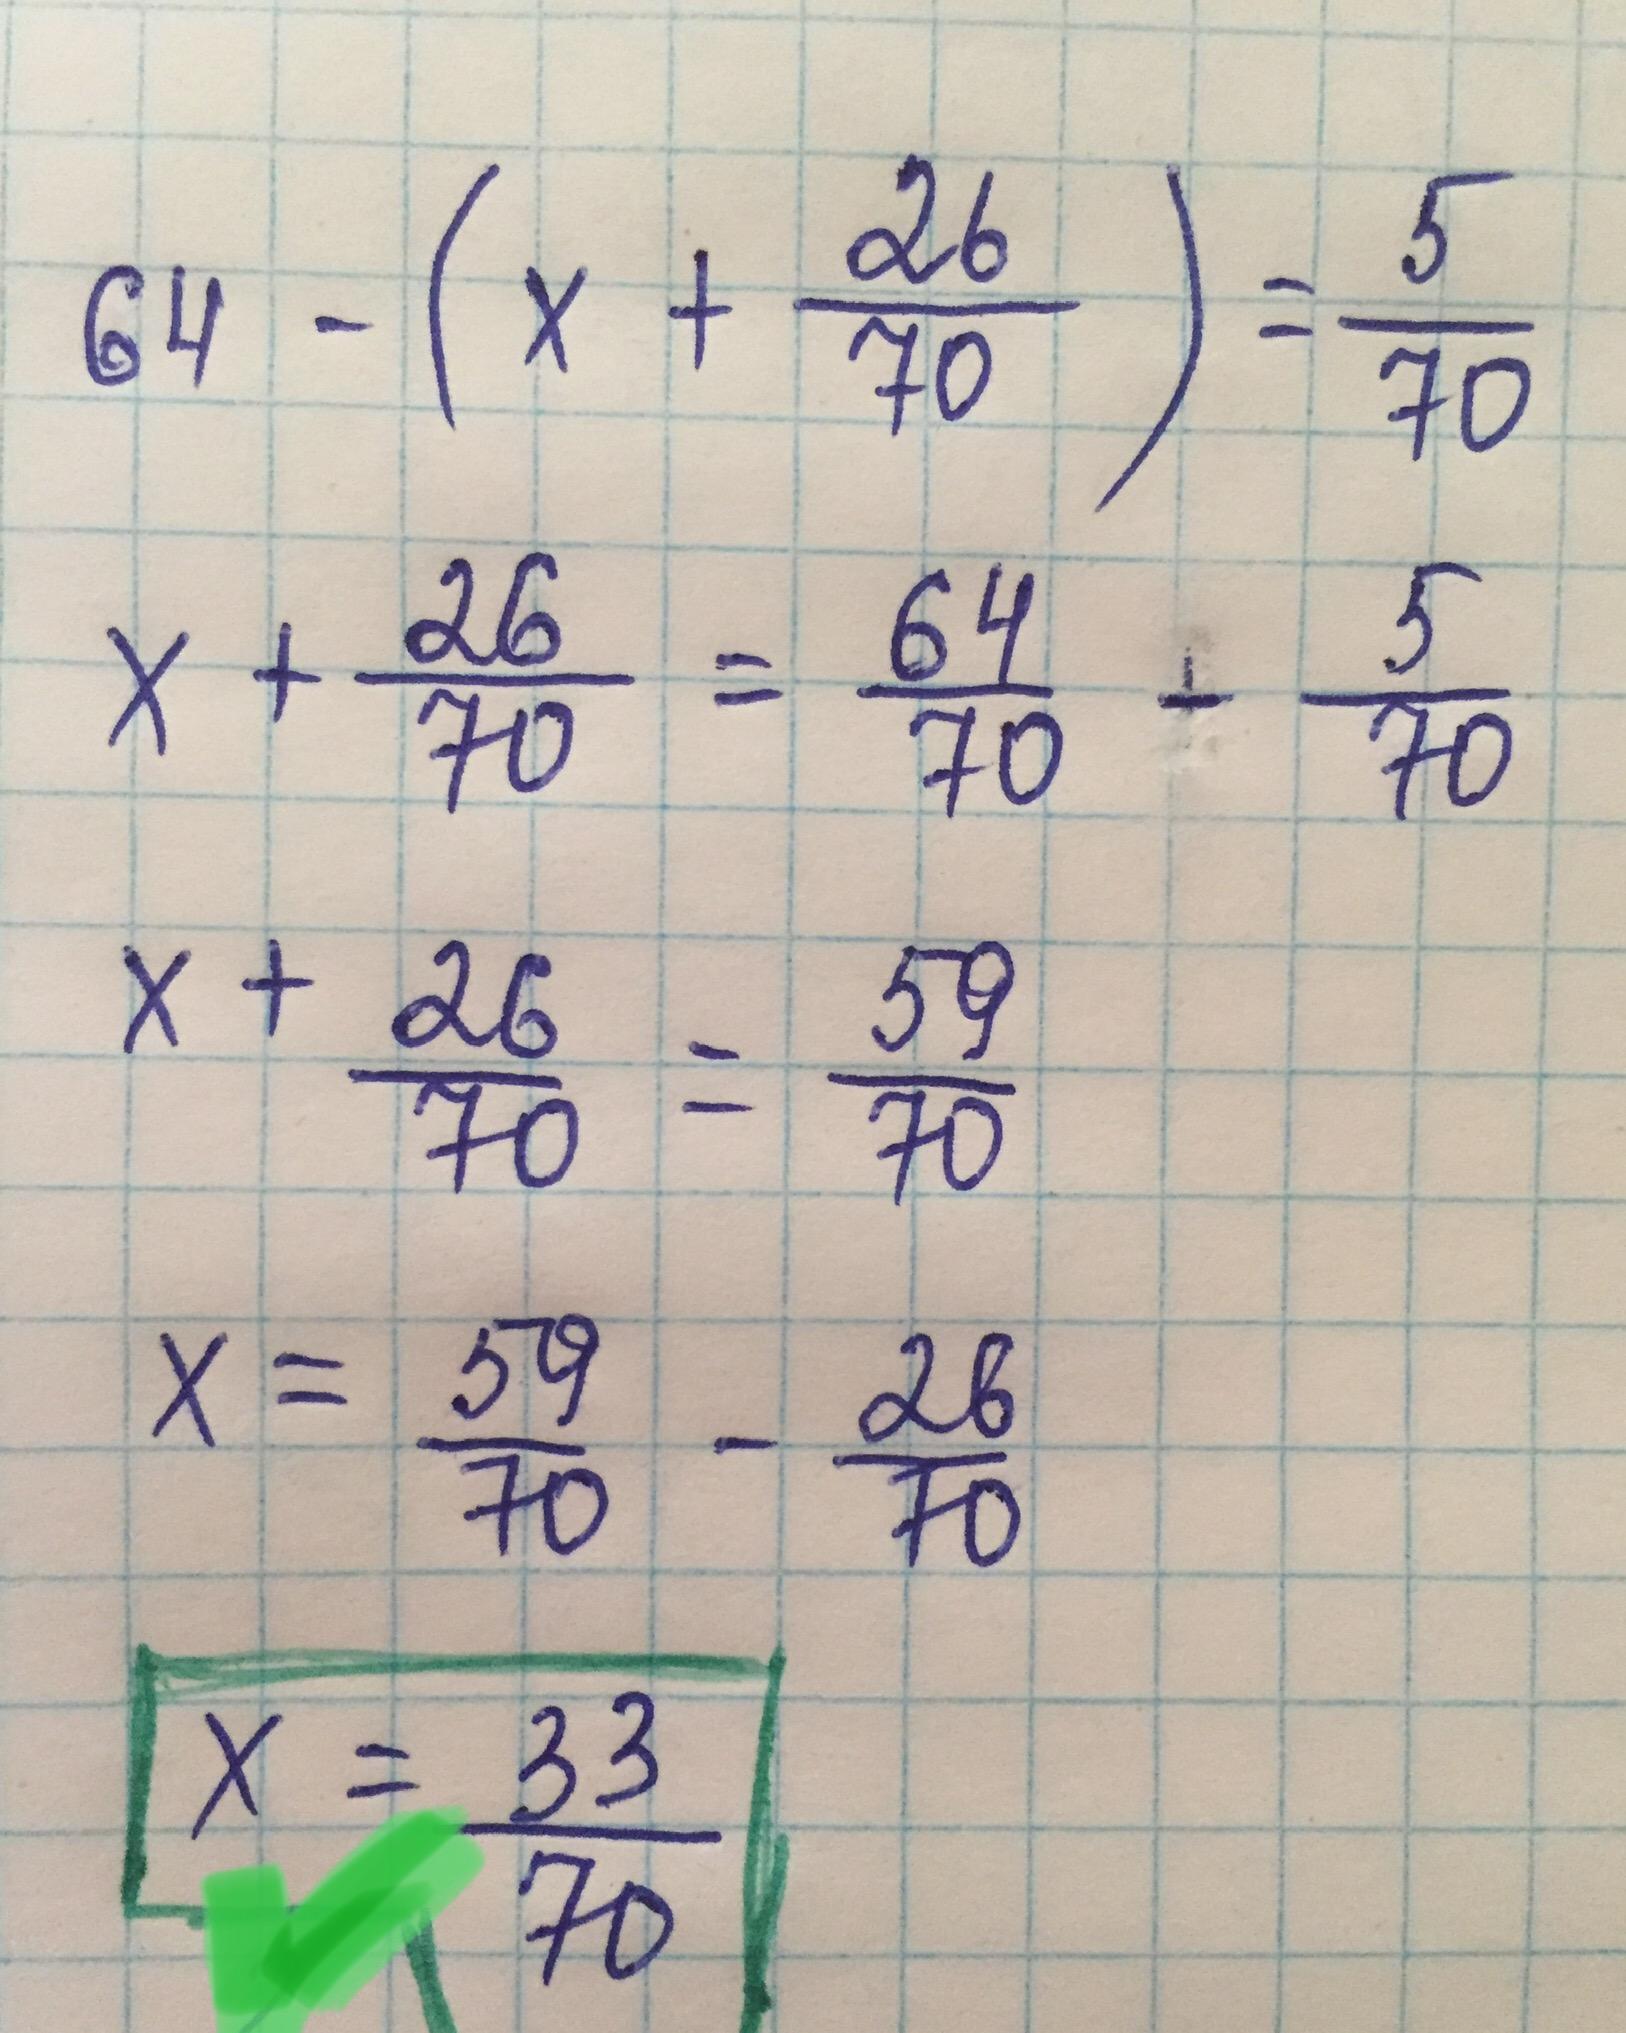 64 - (x + 26/70) = 5/70
x + 26/70 = 64/70 - 5/70
x + 26/70 = 59/70
x = 59/70 - 26/70
x = 33/70